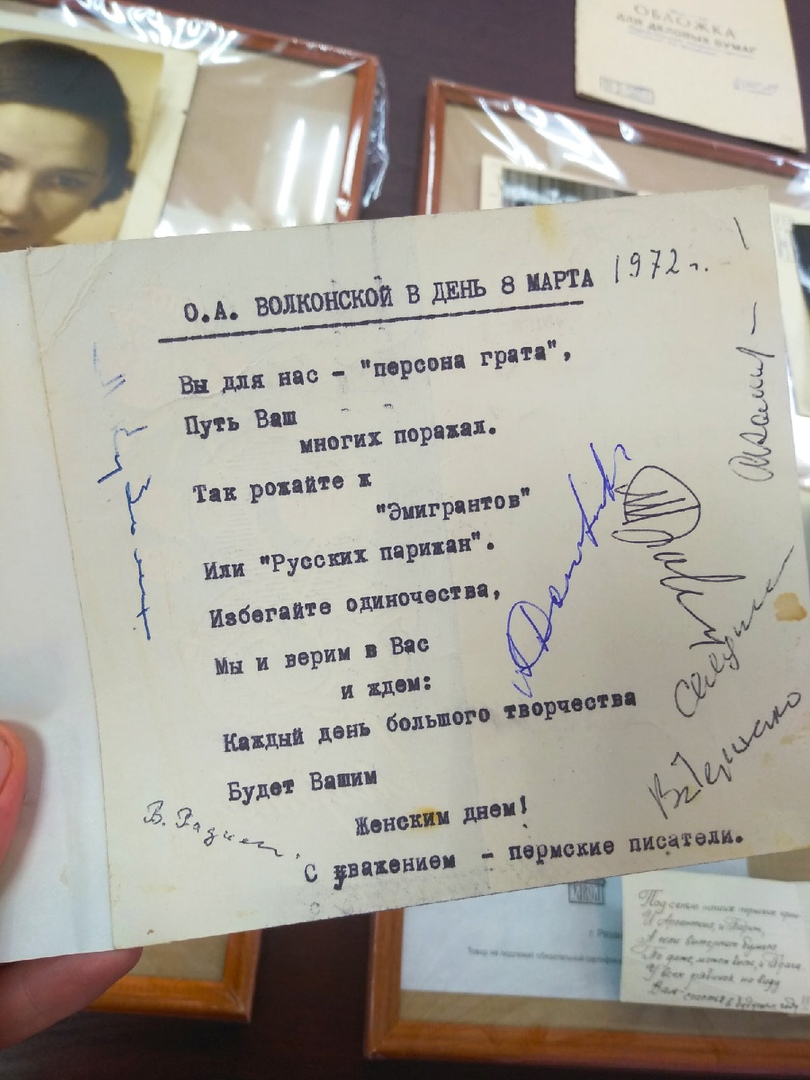 ОБЛОЖКА
ДЛЯ ДЕЛОВЫХ БУМАГ
О.А. ВОЛКОНСКОЙ В ДЕНЬ 8 МАРТА 1972 г.
Вы для нас - "персона грата",
Путь Ваш
многих поражал.
Так рожайте ж
"Эмигрантов"
Или "Русских парижан".
Избегайте одиночества,
Мы и верим в Вас
и ждем:
Каждый день большого творчества
Будет Вашим
Женским днем!
С уважением - пермские писатели.
В. Радкевич
Под сенью наших
И Аргентина, и Париж,
У всех
Вам счастья в будущем году!